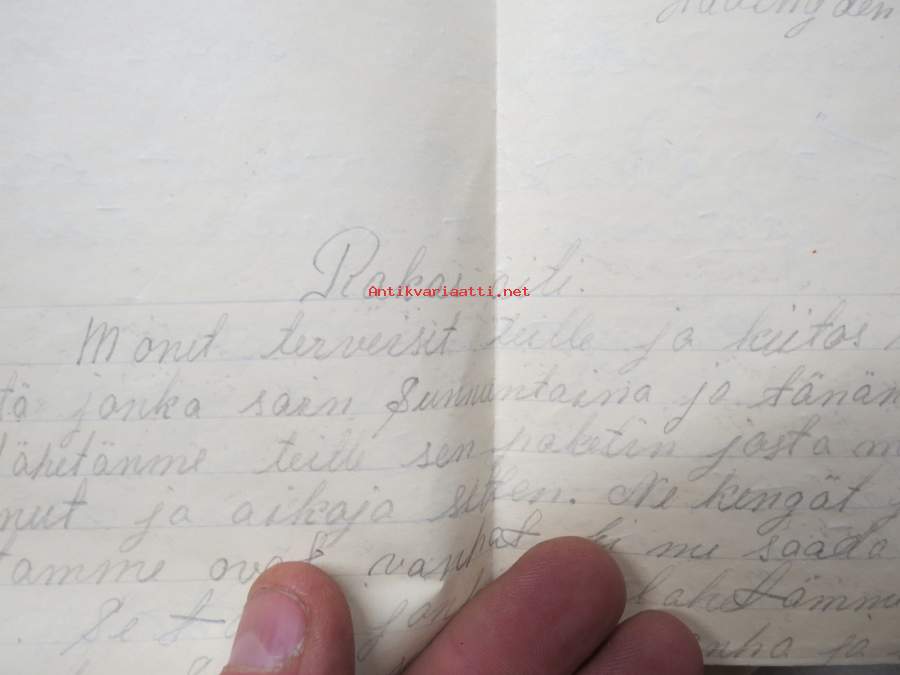 Rakas äiti.
Antikvariaatti.net
Monet terveiset teille ja kiitos
tä jonka sain Sunnuntaina ja tänän
lähetänme teille sen paketin josta m
nut ja aikaja sitten. Ne kengät j
tamme ovat vanhat ei me saada
. Se lahetämme
nha ja